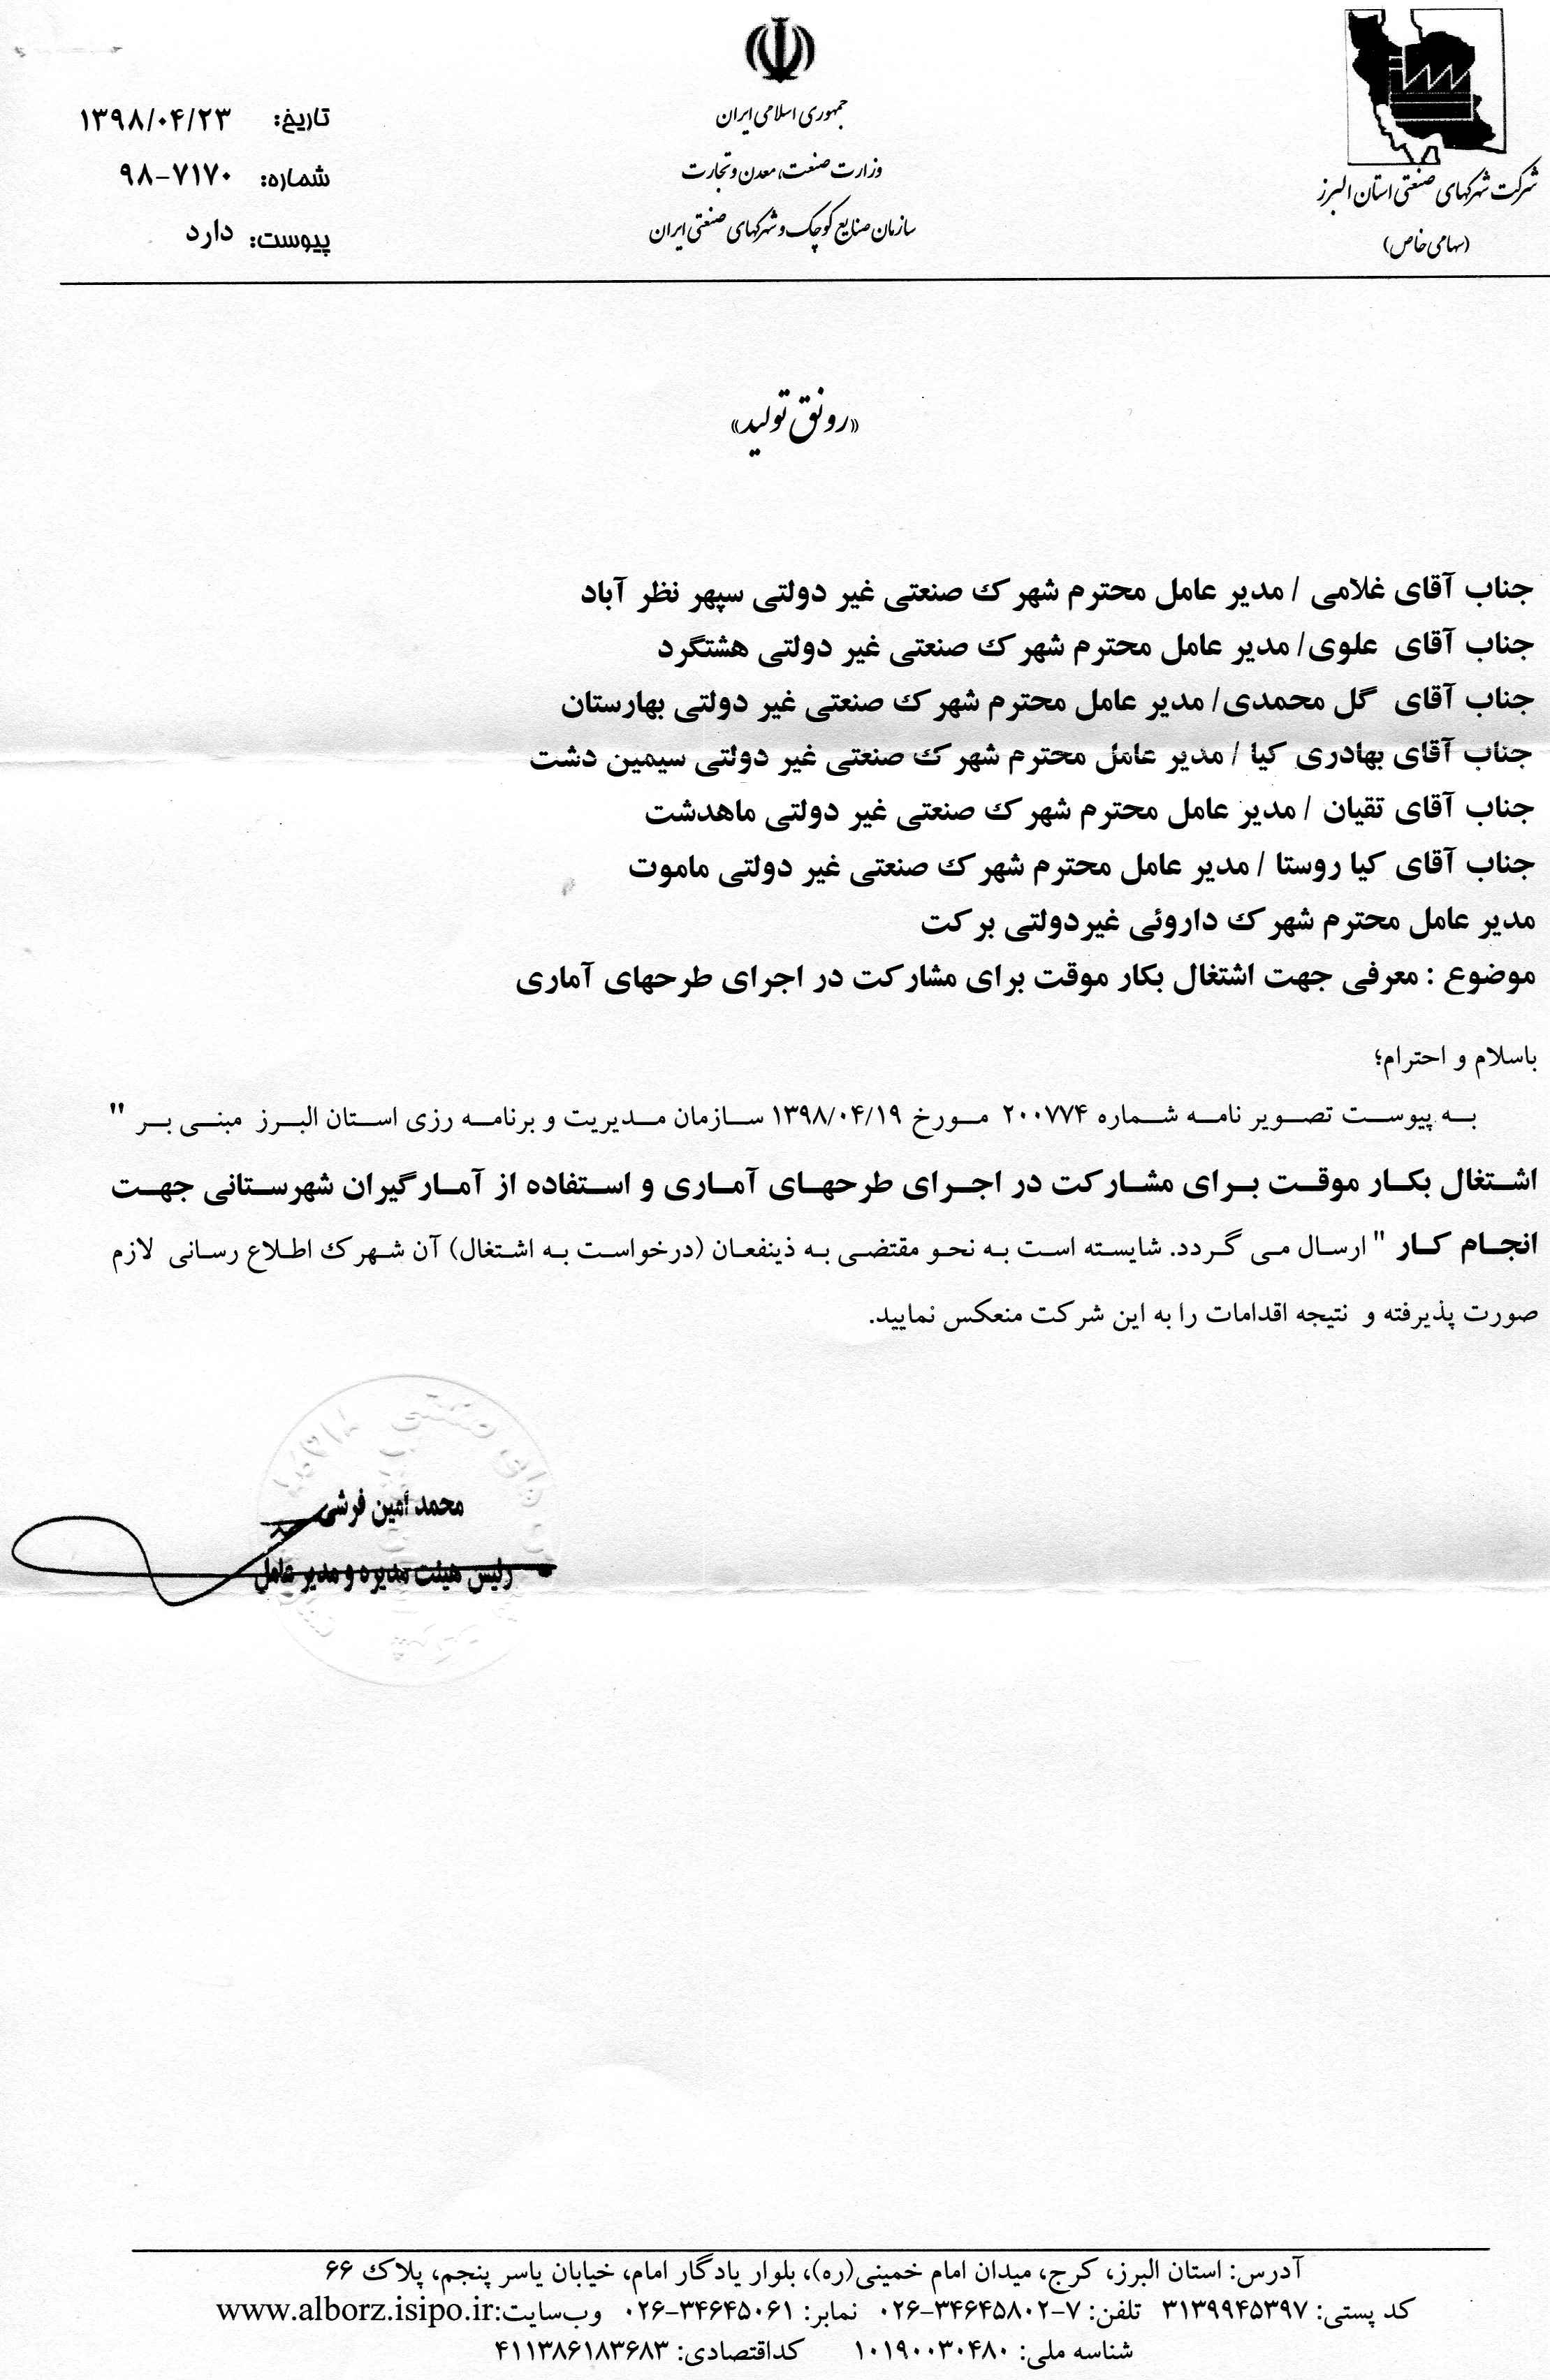 جمهوری اسلامی ایران
وزارت صنعت، معدن و تجارت
سازمان صنایع کوچک و شهرکهای صنعتی ایران
شرکت شهرکهای صنعتی استان البرز
(سهامی خاص)
تاریخ: ۱۳۹۸/۰۴/۲۳
شماره: ۹۸-۷۱۷۰
پیوست: دارد
«رونق تولید»
جناب آقای غلامی / مدیر عامل محترم شهرک صنعتی غیر دولتی سپهر نظر آباد
جناب آقای علوی/ مدیر عامل محترم شهرک صنعتی غیر دولتی هشتگرد
جناب آقای گل محمدی/ مدیر عامل محترم شهرک صنعتی غیر دولتی بهارستان
جناب آقای بهادری کیا / مدیر عامل محترم شهرک صنعتی غیر دولتی سیمین دشت
جناب آقای تقیان / مدیر عامل محترم شهرک صنعتی غیر دولتی ماهدشت
جناب آقای کیا روستا / مدیر عامل محترم شهرک صنعتی غیر دولتی ماموت
مدیر عامل محترم شهرک داروئی غیردولتی برکت
موضوع : معرفی جهت اشتغال بکار موقت برای مشارکت در اجرای طرحهای آماری
باسلام و احترام؛
به پیوست تصویر نامه شماره ۲۰۰۷۷۴ مورخ ۱۳۹۸/۰۴/۱۹ سازمان مدیریت و برنامه رزی استان البرز مبنی بر "
اشتغال بکار موقت برای مشارکت در اجرای طرحهای آماری و استفاده از آمارگیران شهرستانی جهت
انجام کار " ارسال می گردد. شایسته است به نحو مقتضی به ذینفعان (درخواست به اشتغال) آن شهرک اطلاع رسانی لازم
صورت پذیرفته و نتیجه اقدامات را به این شرکت منعکس نمایید.
محمد امین فرشی
رئیس هیئت مدیره و مدیر عامل
آدرس: استان البرز، کرج، میدان امام خمینی(ره)، بلوار یادگار امام، خیابان یاسر پنجم، پلاک ۶۶
کد پستی: ۳۱۳۹۹۴۵۳۹۷ تلفن: ۷-۳۴۶۴۵۸۰۲-۰۲۶ نمابر: ۳۴۶۴۵۰۶۱-۰۲۶ وب‌سایت:www.alborz.isipo.ir
شناسه ملی: ۱۰۱۹۰۰۳۰۴۸۰ کداقتصادی: ۴۱۱۳۸۶۱۸۳۶۸۳